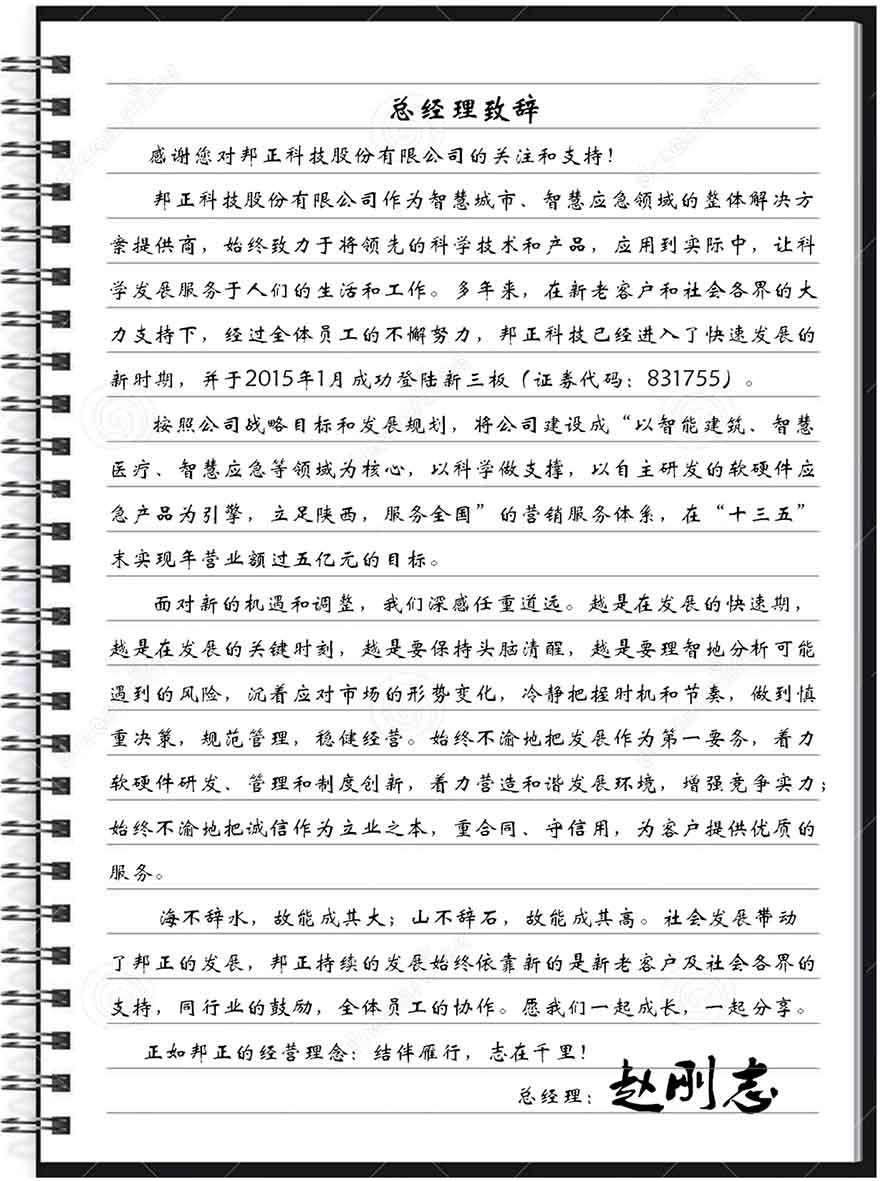 总经理致辞
感谢您对邦正科技股份有限公司的关注和支持！
邦正科技股份有限公司作为智慧城市、智慧应急领域的整体解决方
案提供商，始终致力于将领先的科学技术和产品，应用到实际中，让科
学发展服务于人们的生活和工作。多年来，在新老客户和社会各界的大
力支持下，经过全体员工的不懈努力，邦正科技已经进入了快速发展的
新时期，并于2015年1月成功登陆新三板（证券代码：831755）。
按照公司战略目标和发展规划，将公司建设成“以智能建筑、智慧
医疗、智慧应急等领域为核心，以科学做支撑，以自主研发的软硬件应
急产品为引擎，立足陕西，服务全国”的营销服务体系，在“十三五”
末实现年营业额过五亿元的目标。
面对新的机遇和调整，我们深感任重道远。越是在发展的快速期，
越是在发展的关键时刻，越是要保持头脑清醒，越是要理智地分析可能
遇到的风险，沉着应对市场的形势变化，冷静把握时机和节奏，做到慎
重决策，规范管理，稳健经营。始终不渝地把发展作为第一要务，着力
软硬件研发、管理和制度创新，着力营造和谐发展环境，增强竞争实力；
始终不渝地把诚信作为立业之本，重合同、守信用，为客户提供优质的
服务。
海不辞水，故能成其大；山不辞石，故能成其高。社会发展带动
了邦正的发展，邦正持续的发展始终依靠新的是新老客户及社会各界的
支持，同行业的鼓励，全体员工的协作。愿我们一起成长，一起分享。
正如邦正的经营理念：结伴雁行，志在千里！
总经理：赵刚志